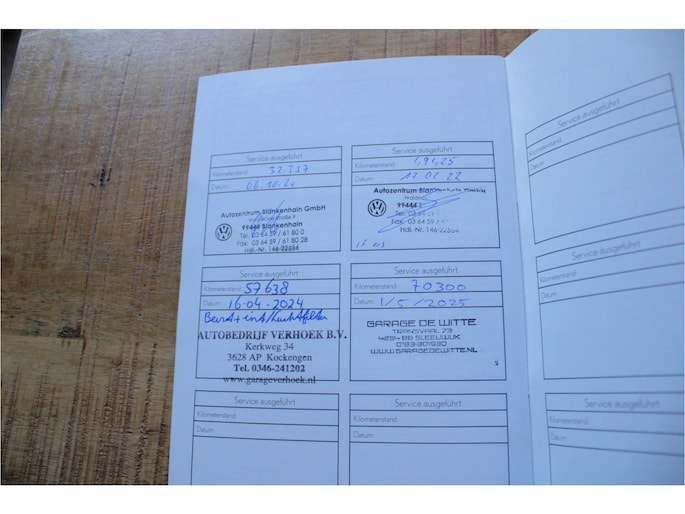 Service ausgeführt
Kilometerstand: 32.337
Datum: 06.10.20
Autozentrum Blankenhain GmbH
99444 Blankenhain
Tel. 03 64 59 / 61 80 0
Fax: 03 64 59 / 61 80 28
Hdl.-Nr. 146-22554
Service ausgeführt
Kilometerstand:
Datum: 17.02.22
Autozentrum
99444
Tel. 03 64 59 /
Fax: 03 64 59 /
Hdl.-Nr. 146-22554
Service ausgeführt
Kilometerstand: 57638
Datum: 16-04-2024
AUTOBEDRIJF VERHOEK B.V.
Kerkweg 34
3628 AP Kockengen
Tel. 0346-241202
www.garageverhoek.nl
Service ausgeführt
Kilometerstand: 70300
Datum: 1/5/2025
GARAGE DE WITTE
TRANSVAAL 73
4254 BB SLEEUWIJK
0183-301930
WWW.GARAGEDEWITTE.NL
Service ausgeführt
Kilometerstand:
Datum:
Service ausgeführt
Kilometerstand:
Datum:
Service ausgeführt
Kilometerstand:
Datum:
Service ausgeführt
Kilometerstand:
Datum:
Service ausgeführt
Kilometerstand:
Datum: